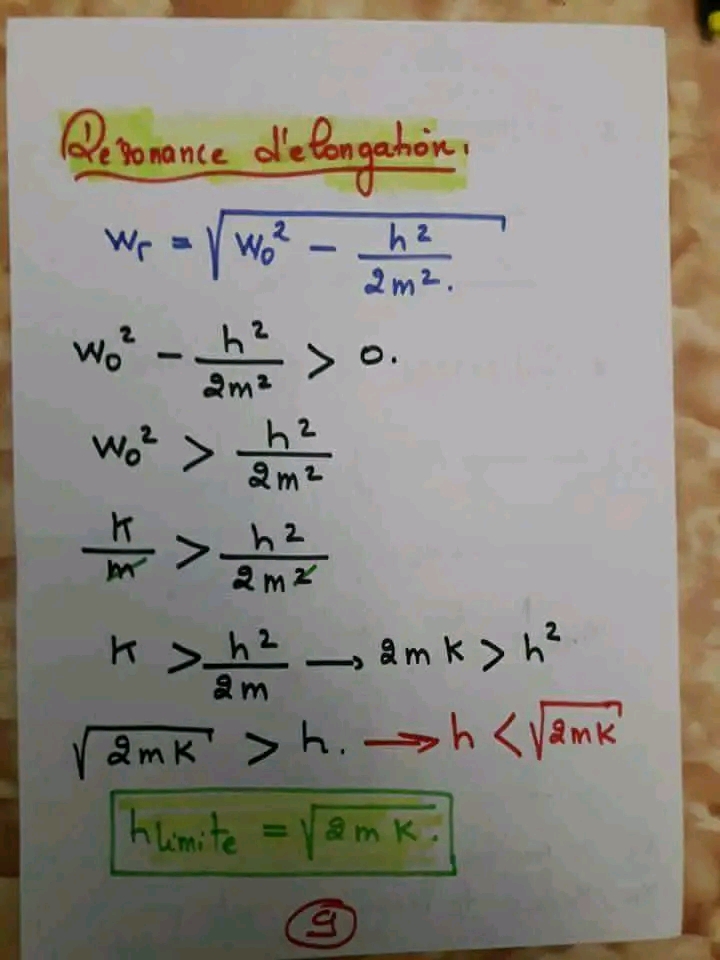 Résonance d'elongation.
Wr = √(W₀² − h²/2m².)
W₀² − h²/2m² > 0.
W₀² > h²/2m²
K/m > h²/2m²
K > h²/2m → 2mK > h²
√(2mK) > h. → h < √(2mK)
hLimite = √(2mK.)
9